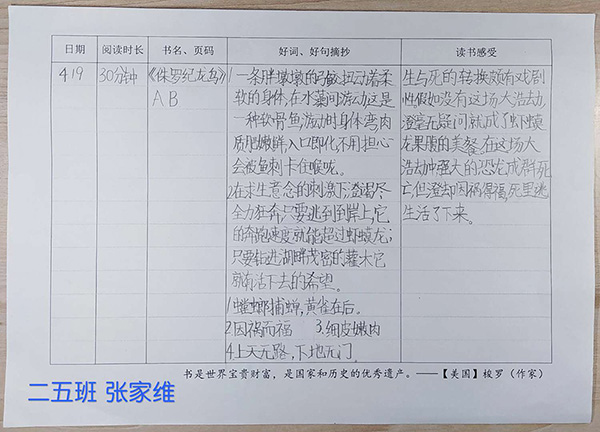 日期 阅读时长 书名、页码 好词、好句摘抄 读书感受
4.19 30分钟 《侏罗纪龙鸟》
AB
1一条胖墩墩的弓鳐扭动着柔
软的身体,在水藻间游动,这是
一种软骨鱼,游动时身体弯,肉
质肥嫩鲜,入口即化不用担心
会被鱼刺卡住喉咙。
2.在求生意念的刺激下,澄竭尽
全力狂奔,只要逃到到岸上,它
的奔跑速度就能超过虾蟆龙;
只要钻进湖畔茂密的灌木,它
就有活下去的希望。
1.螳螂捕蝉,黄雀在后。
2.因祸而福 3.细皮嫩肉
4.上天无路,下地无门。
生与死的转换颇有戏剧
性假如没有这场大浩劫,
澄毫无疑问就成了虾蟆
龙果腹的美餐。在这场大
浩劫中强大的恐龙成群死
亡,但澄却因祸得福,死里逃
生活了下来。
书是世界宝贵财富,是国家和历史的优秀遗产。——【美国】梭罗(作家)
二五班 张家维